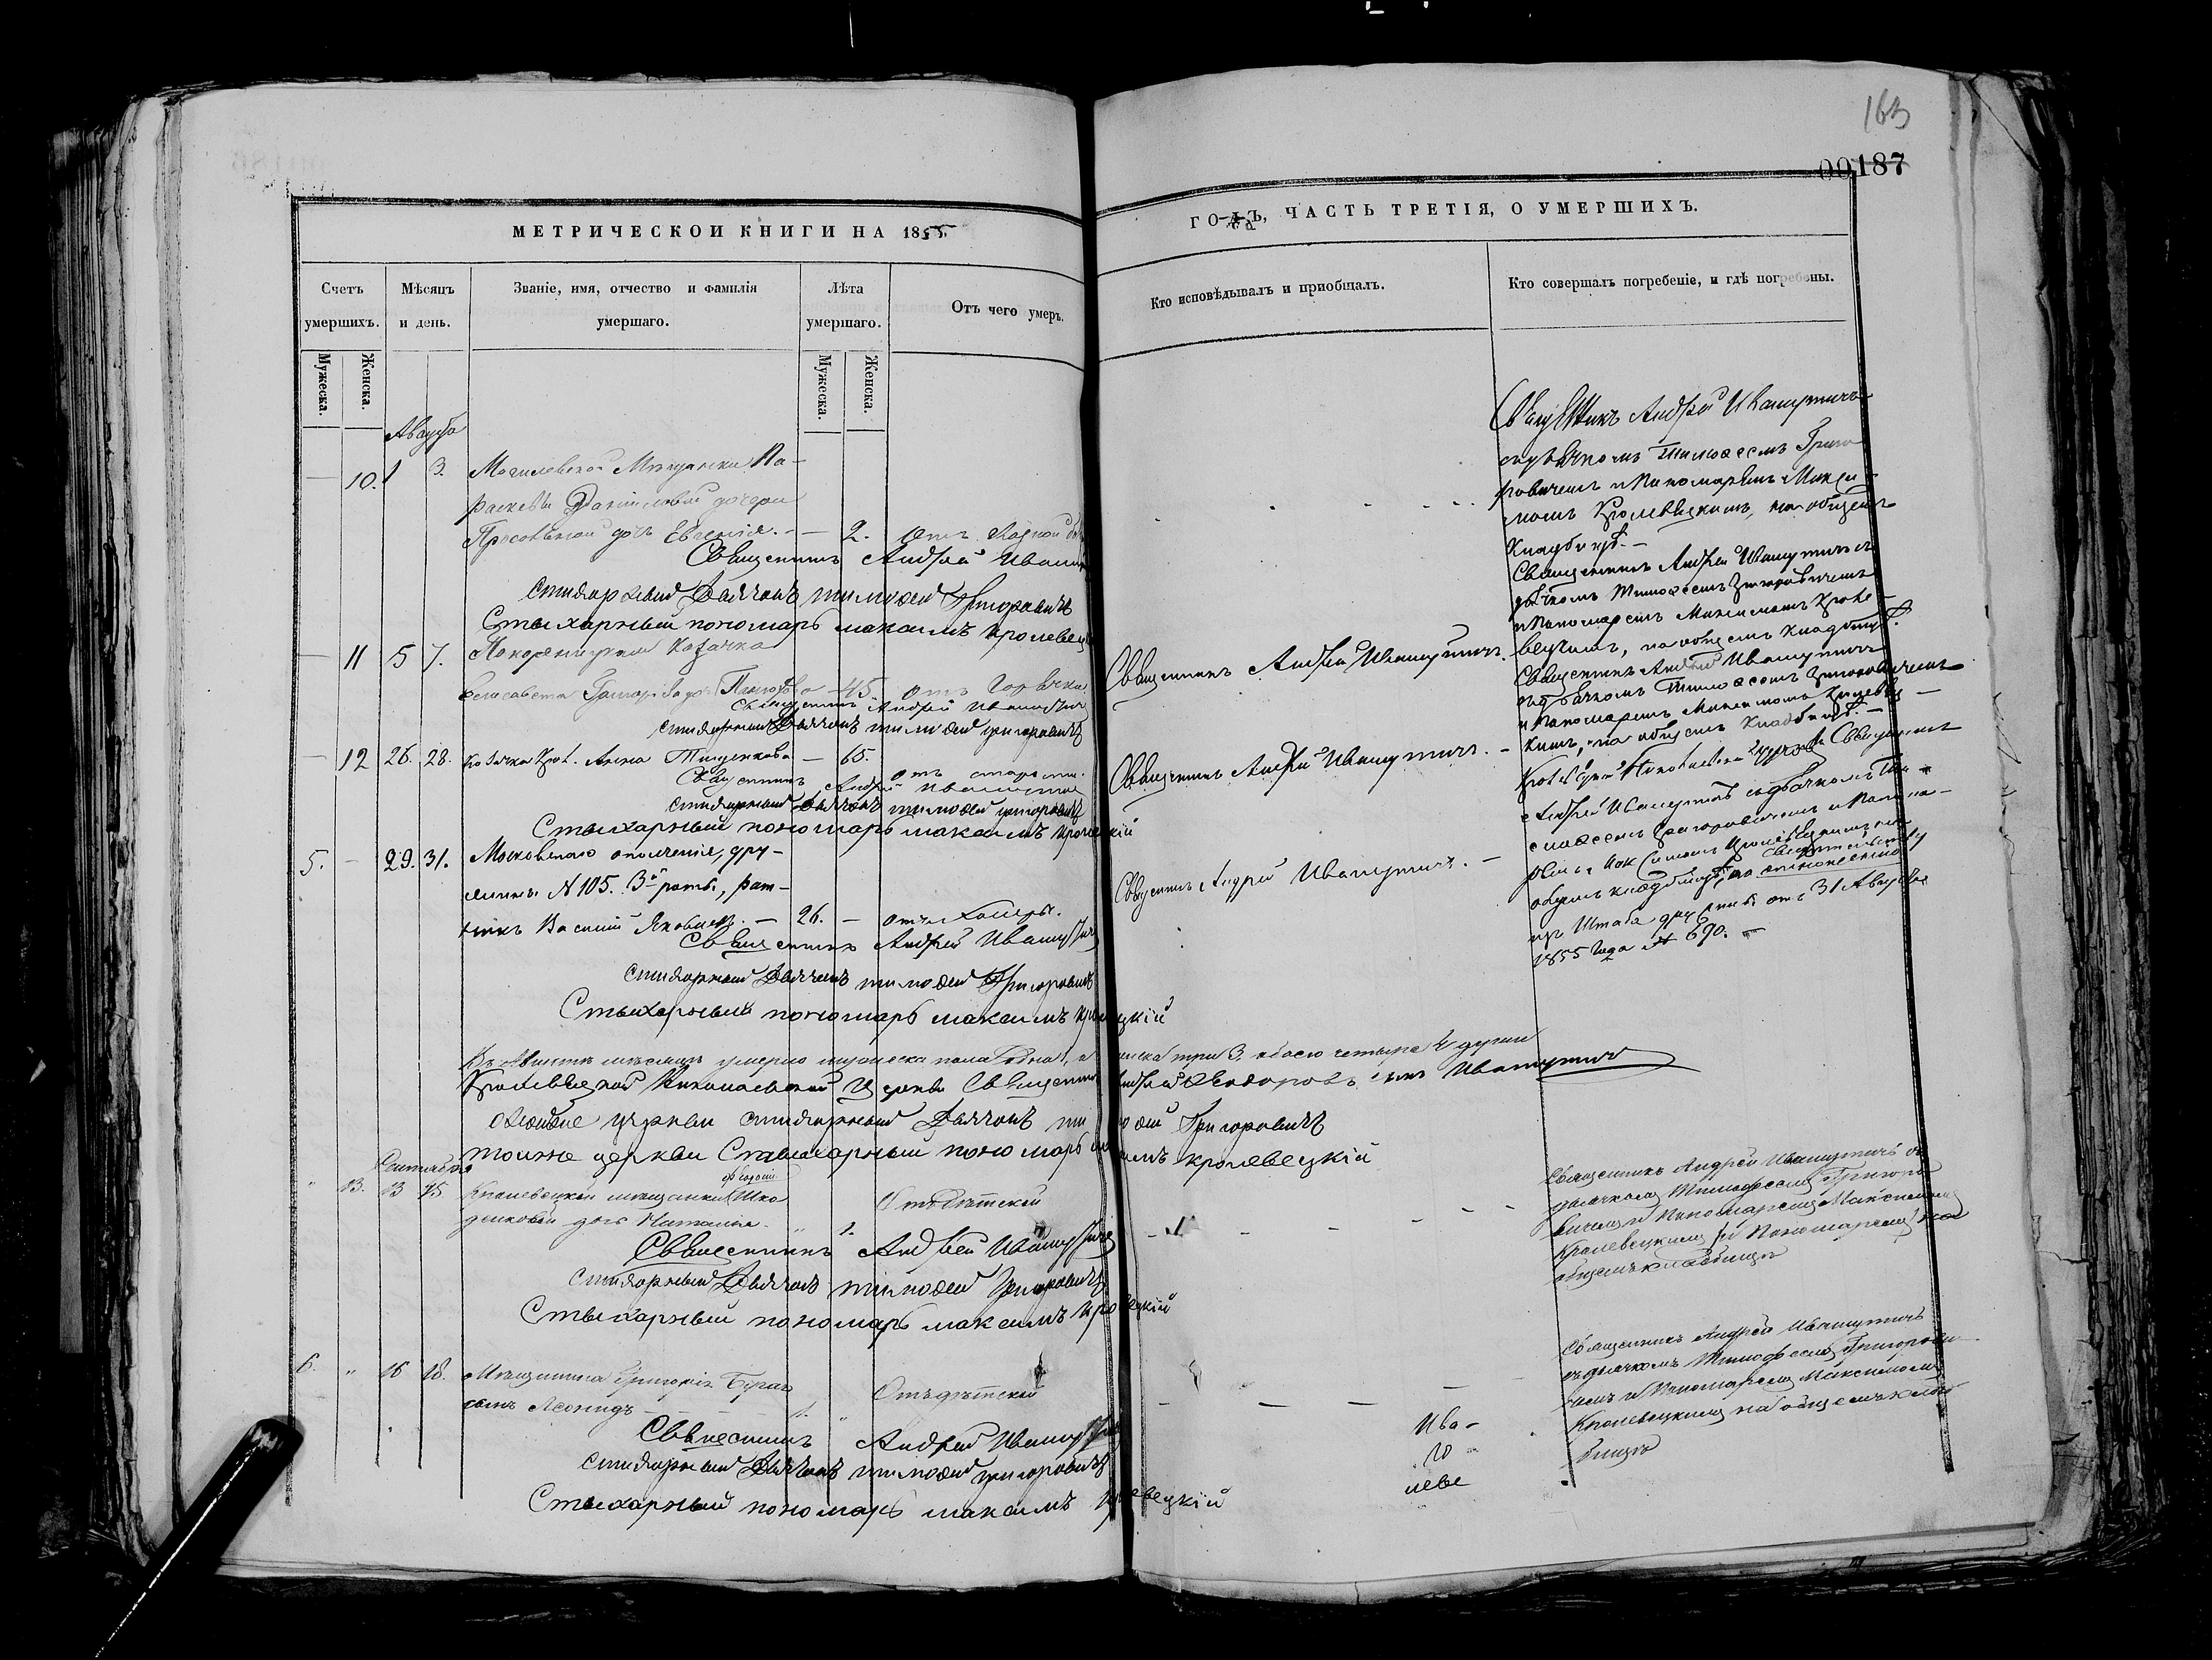 163
00187
МЕТРИЧЕСКОЙ КНИГИ НА 1855.
ГОДЪ, ЧАСТЬ ТРЕТІЯ, О УМЕРШИХЪ.
Счетъ умершихъ.
Мѣсяцъ и день.
Званіе, имя, отчество и фамилія умершаго.
Лѣта умершаго.
Отъ чего умеръ.
Кто исповѣдывалъ и пріобщалъ.
Кто совершалъ погребеніе, и гдѣ погребены.
Мужеска.
Женска.
Мужеска.
Женска.
Августа
10. 1 3. Могилевской Мѣщанки Па-
раскевы Даниловой дочери
дочь Евгенія. — 2.
Священникъ Андрей Ивашутичъ
стихарный Дьячокъ тимофей Григоровичъ
Стыхарный пономарь максимъ кролевецкій
Священникъ Андрей Ивашутичъ
съ дьячкомъ Тимофеемъ Григо
ровичемъ и Пономаремъ Макси-
момъ Кролевецкимъ, на общемъ
Кладбищѣ. —
11 5 7. Козачка
Елисавета 45. отъ Горячки
Священникъ Андрей Ивашутичъ
стихарный Дьячокъ тимофей григоровичъ
Священникъ Андрей Ивашутичъ.
Священникъ Андрей Ивашутичъ съ
дьячкомъ Тимофеемъ Григоровичемъ
и Пономаремъ Максимомъ Кроле-
вецкимъ, на общемъ Кладбищѣ.
12 26. 28. Козачка Крол. Анна Тищенкова — 65. отъ старости.
Священникъ Андрей Ивашутичъ
стихарный Дьячокъ тимофей григоровичъ
Стыхарный пономарь максимъ кролевецкій
Священникъ Андрей Ивашутичъ. —
Священникъ Андрей Ивашутичъ
съ дьячкомъ Тимофеемъ Григоровичемъ
и Пономаремъ Максимомъ Кролевец-
кимъ, на общемъ Кладбищѣ. —
5. — 29. 31. Московскаго ополченія, дру-
жины № 105. 3й роты, рат-
никъ Василій Яковлевъ. — 26. — отъ холеры.
Священникъ Андрей Ивашутичъ
стихарный Дьячокъ тимофей Григоровичъ
Стыхарный пономарь максимъ кролевецкій
Священникъ Андрей Ивашутичъ. —
Николаевской Церкви Священникъ
Андрей Ивашутичъ съ дьячкомъ Ти-
мофеемъ Григоровичемъ и Понома-
ремъ Максимомъ Кролевецкимъ на
общемъ кладбищѣ, по
изъ Штаба дружины отъ 31 Августа
1855 года № 690. —
Въ Августѣ мѣсяцѣ умерло мужеска пола одна 1, а женска три 3, обоего четыре 4 души
Кролевецкой Николаевской Церкви Священникъ Андрей Ѳеодоровъ сынъ Ивашутичъ
церкви стихарный Дьячокъ тимофей Григоровичъ
тоиже церкви Стыхарный пономарь максимъ кролевецкій
Сентября
13. 13 15 Кролевецкой мѣщанки
дочь Наталія 1. Отъ дѣтской
Священникъ Андрей Ивашутичъ
стихарный Дьячокъ тимофей григоровичъ
Стыхарный пономарь максимъ кролевецкій
Священникъ Андрей Ивашутичъ съ
дьячкомъ Тимофеемъ Григоро
вичемъ и Пономаремъ Максимомъ
Кролевецкимъ на
общемъ кладбищѣ
6. " 16 18. Мѣщанина Григорія
сынъ Леонидъ 1. " Отъ дѣтской
Священникъ Андрей Ивашутичъ
стихарный Дьячокъ тимофей григоровичъ
Стыхарный пономарь максимъ кролевецкій
Священникъ Андрей Ивашутичъ
съ дьячкомъ Тимофеемъ Григорови
чемъ и Пономаремъ Максимомъ
Кролевецкимъ на общемъ клад
бищѣ